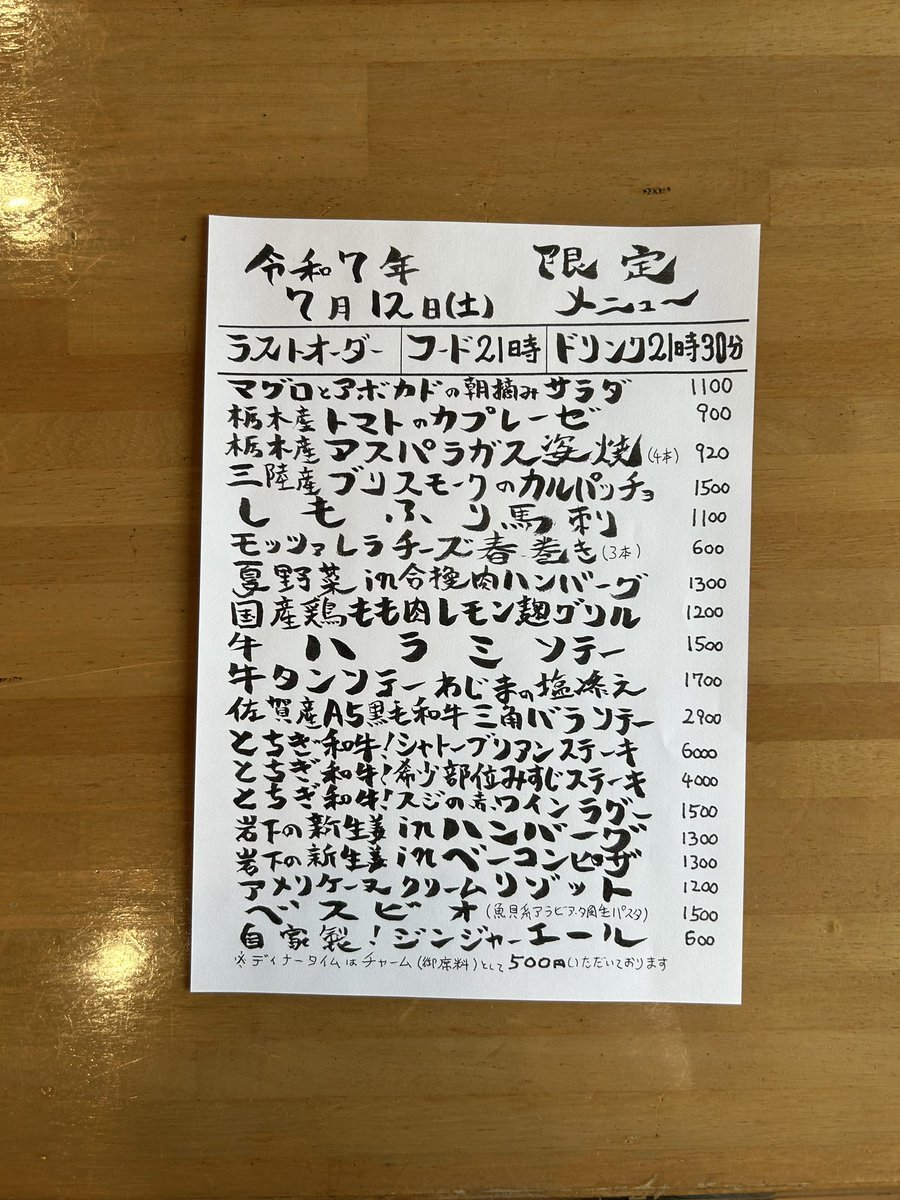 令和7年 限定
7月12日(土) メニュー
ラストオーダー フード21時 ドリンク21時30分
マグロとアボカドの朝摘みサラダ 1100
栃木産トマトのカプレーゼ 900
栃木産アスパラガス姿焼(4本) 920
三陸産ブリスモークのカルパッチョ 1500
しもふり馬刺 1100
モッツァレラチーズ春巻き(3本) 600
夏野菜in合挽肉ハンバーグ 1300
国産鶏もも肉レモン麹グリル 1200
牛ハラミソテー 1500
牛タンソテーわじまの塩添え 1700
佐賀産A5黒毛和牛三角バラソテー 2900
とちぎ和牛!シャトーブリアンステーキ 6000
とちぎ和牛!希少部位みすじステーキ 4000
とちぎ和牛!スジの赤ワインラグー 1500
岩下の新生姜inハンバーグ 1300
岩下の新生姜inベーコンピザ 1300
アメリケーヌクリームリゾット 1200
ベスビオ(魚貝系アラビアータ生パスタ) 1500
自家製!ジンジャーエール 600
※ディナータイムはチャーム(御席料)として500円いただいております